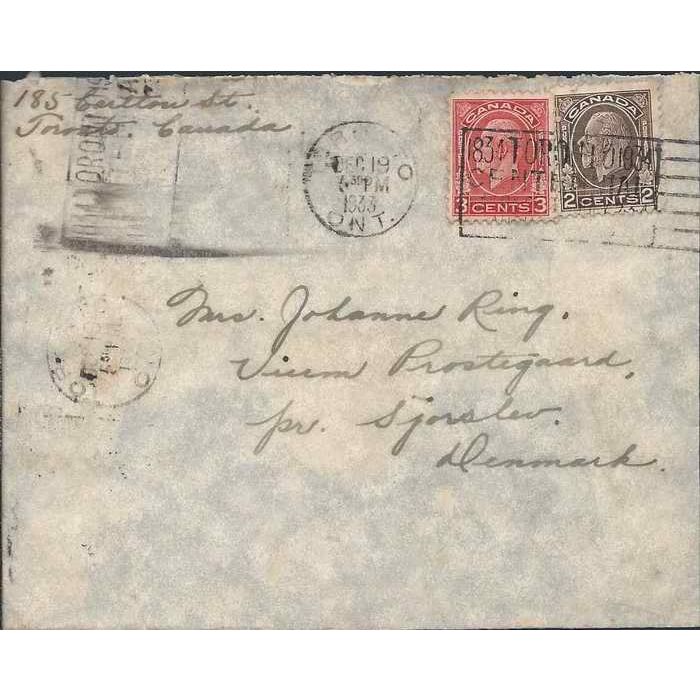 185 Carlton St.
Toronto. Canada
DEC 19
PM
1933
ONT.
CANADA
3 CENTS 3
CANADA
2 CENTS 2
1834 TORONTO 1934
CENTENNIAL
Mrs. Johanne Ring,
Viem Prostegaard,
pr. Sjorslev.
Denmark.